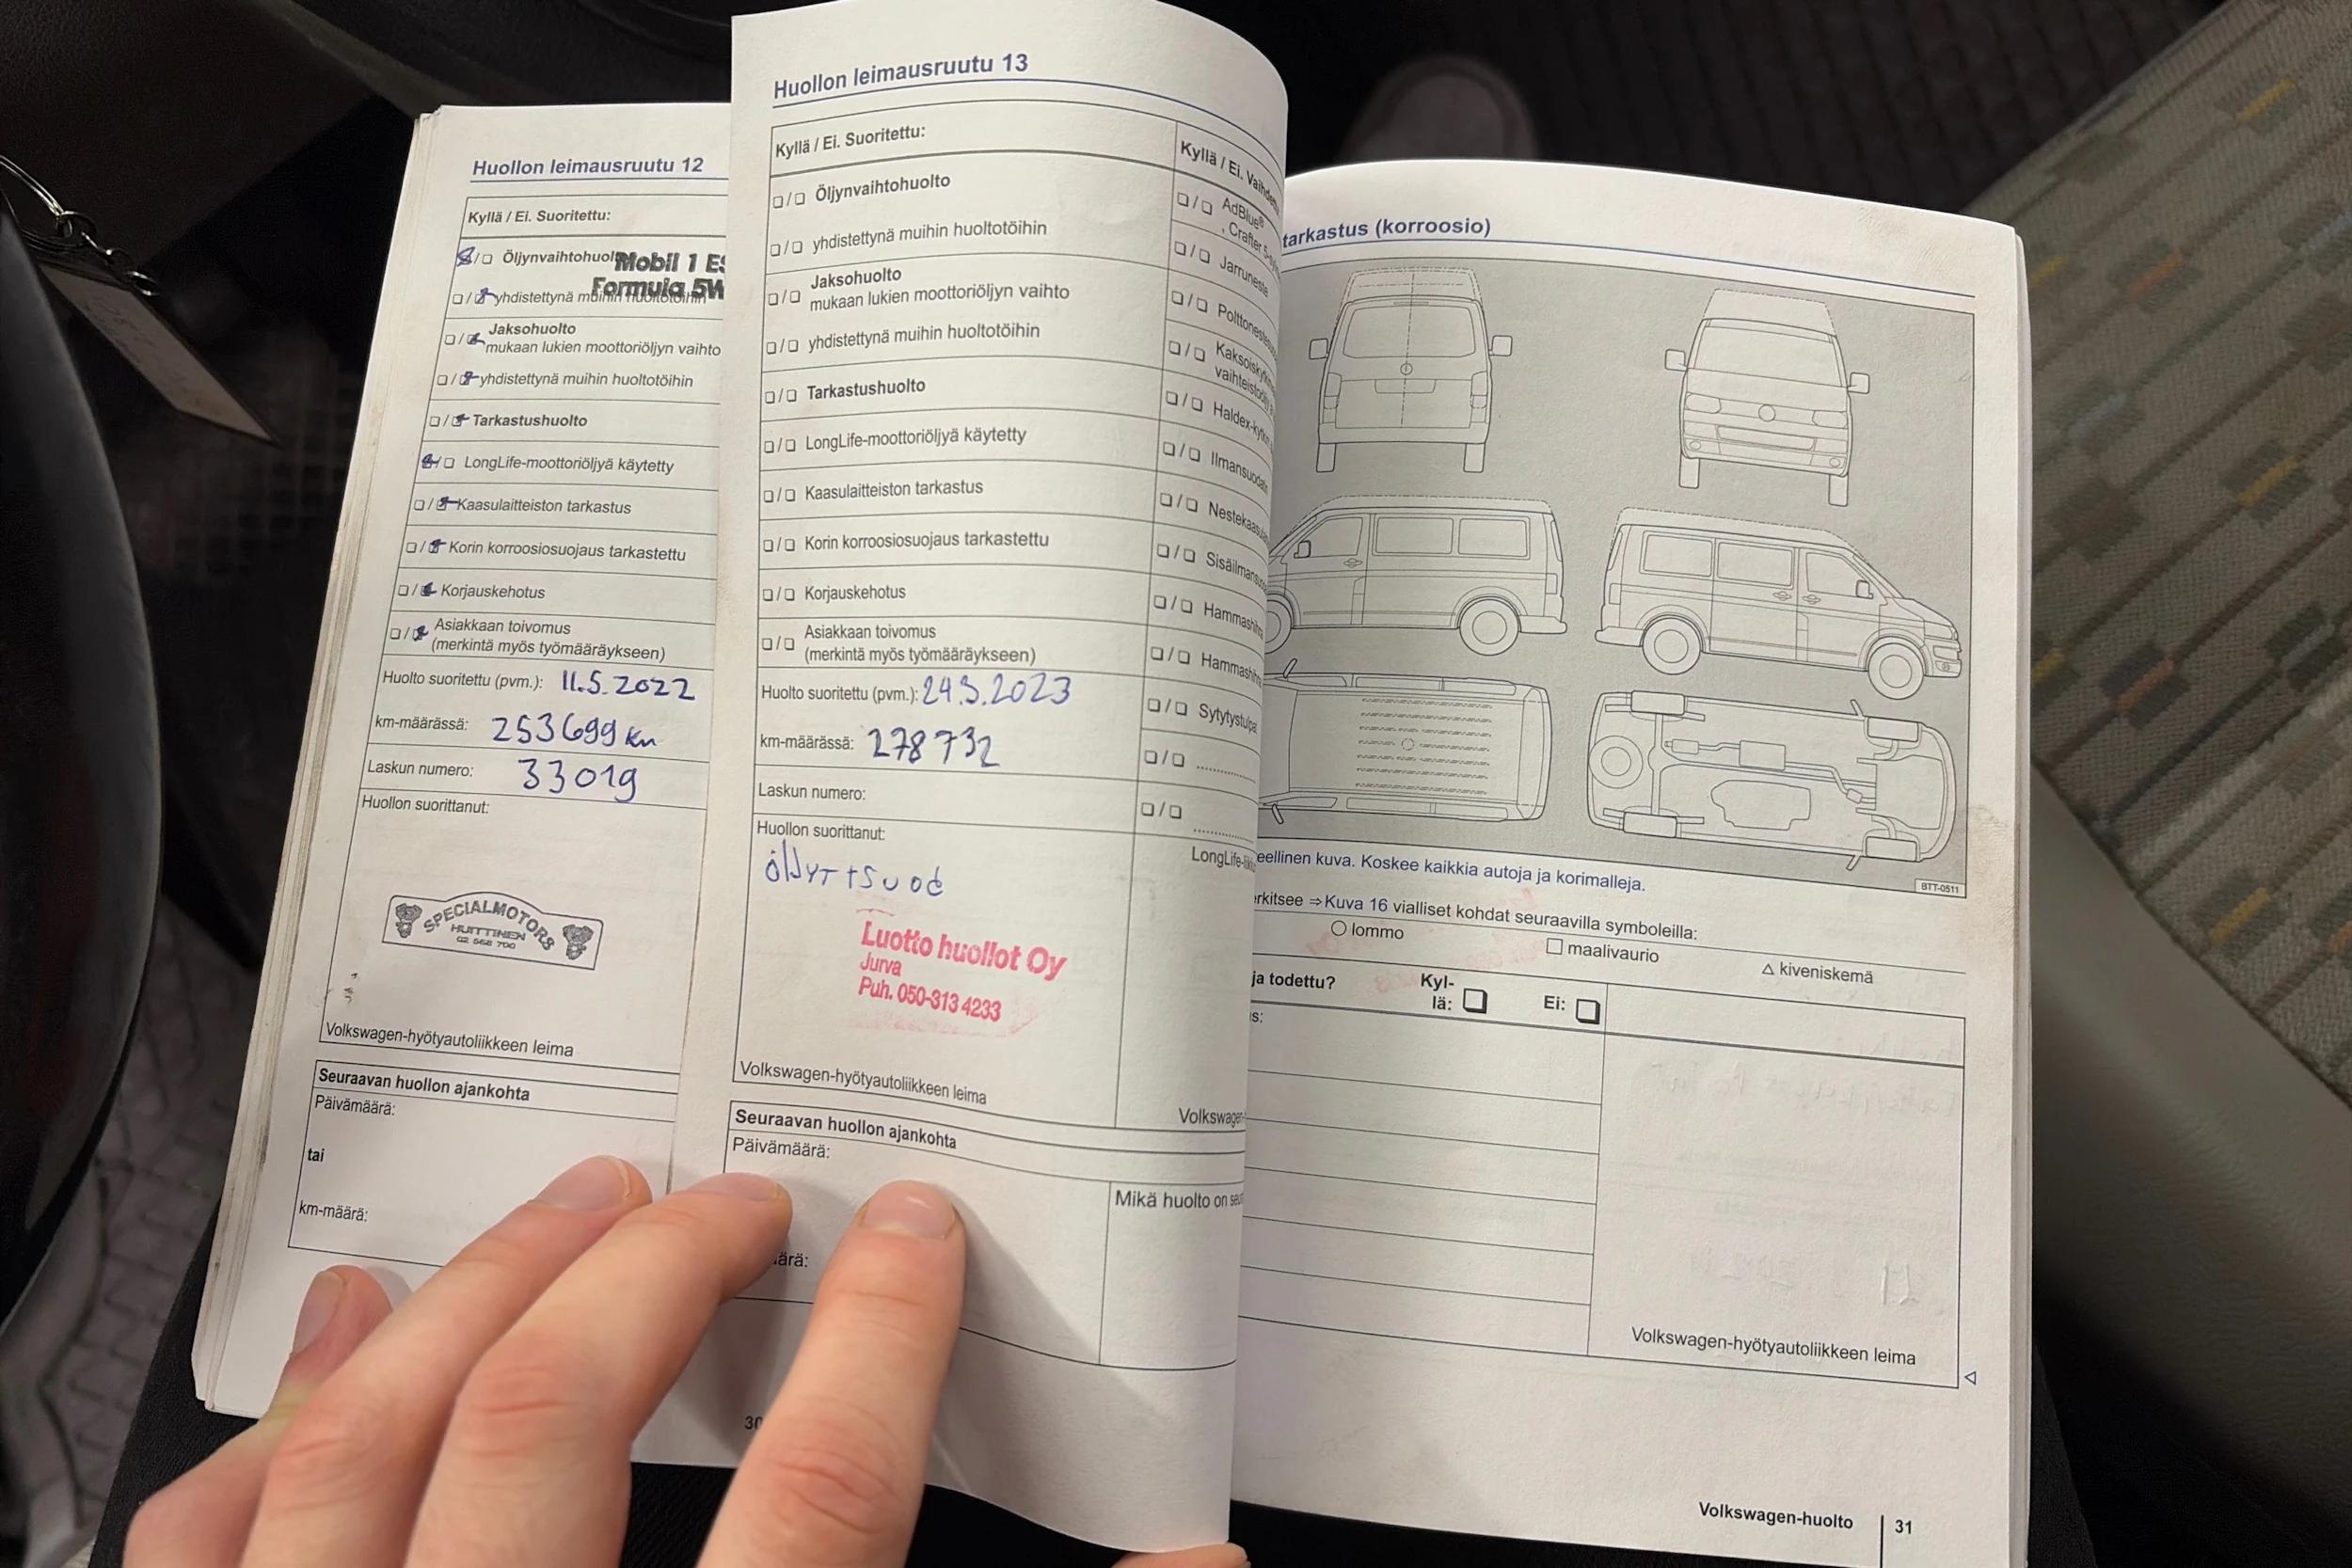 Huollon leimausruutu 12
Kyllä / Ei. Suoritettu:
Öljynvaihtohuol
Mobil 1 ES
Formula 5W
yhdistettynä muihin huoltotöihin
Jaksohuolto
mukaan lukien moottoriöljyn vaihto
yhdistettynä muihin huoltotöihin
Tarkastushuolto
LongLife-moottoriöljyä käytetty
Kaasulaitteiston tarkastus
Korin korroosiosuojaus tarkastettu
Korjauskehotus
Asiakkaan toivomus
(merkintä myös työmääräykseen)
Huolto suoritettu (pvm.): 11.5.2022
km-määrässä: 253699 km
Laskun numero: 33019
Huollon suorittanut:
SPECIALMOTORS
HUITTINEN
02 568 700
Volkswagen-hyötyautoliikkeen leima
Seuraavan huollon ajankohta
Päivämäärä:
tai
km-määrä:
Huollon leimausruutu 13
Kyllä / Ei. Suoritettu:
Öljynvaihtohuolto
yhdistettynä muihin huoltotöihin
Jaksohuolto
mukaan lukien moottoriöljyn vaihto
yhdistettynä muihin huoltotöihin
Tarkastushuolto
LongLife-moottoriöljyä käytetty
Kaasulaitteiston tarkastus
Korin korroosiosuojaus tarkastettu
Korjauskehotus
Asiakkaan toivomus
(merkintä myös työmääräykseen)
Huolto suoritettu (pvm.): 24.3.2023
km-määrässä: 278732
Laskun numero:
Huollon suorittanut:
Luotto huollot Oy
Jurva
Puh. 050-313 4233
Volkswagen-hyötyautoliikkeen leima
Seuraavan huollon ajankohta
Päivämäärä:
ärä:
30
Kyllä / Ei. Vaihdett
AdBlue®
, Crafter 5-sy
Jarruneste
Polttonestesuo
Kaksoiskytkin
vaihteistoöljy
Haldex-kytkin
Ilmansuodatin
Nestekaasu
Sisäilmansuo
Hammashihna
Hammashihna
Sytytystulpat
LongLife-
Volkswagen-
Mikä huolto on seu
tarkastus (korroosio)
BTT-0511
eellinen kuva. Koskee kaikkia autoja ja korimalleja.
rkitsee ⇒ Kuva 16 vialliset kohdat seuraavilla symboleilla:
○ lommo □ maalivaurio △ kiveniskemä
ja todettu? Kyl-
lä: Ei:
s:
Volkswagen-hyötyautoliikkeen leima
Volkswagen-huolto 31